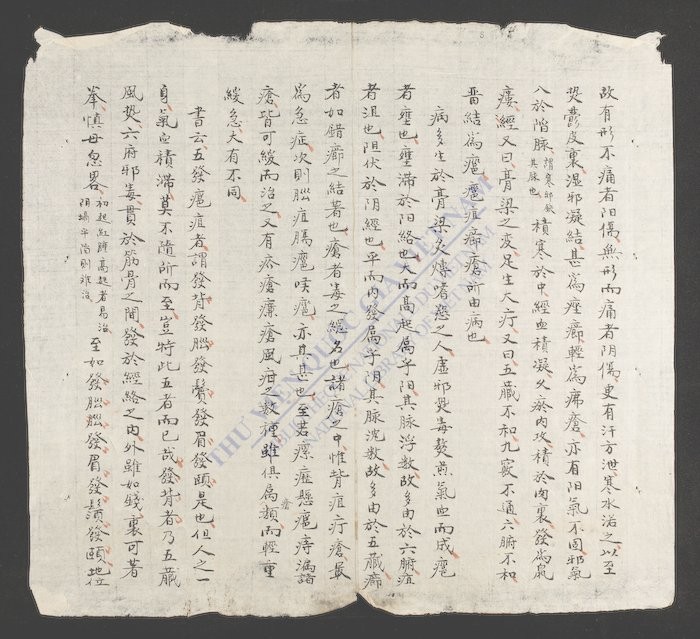 故有形不痛者阳傷無形而痛者阴傷更有汗方泄寒水浴之以至
熒鬱皮裏湿邪凝結甚為痤癤輕為疿瘡亦有阳氣不固邪氣
入於陷脉謂寒邪氣其脉也積寒於中經血積凝久瘀肉攻積於肉裏發為鼠
瘻經又曰膏梁之变足生大疔又曰五臓不和九竅不通六腑不和
畨結為癰癰疽癤瘡所由病也
病多生於膏梁炙煿嗜慾之人虚邪熱毒熬煎氣血而成癰
者壅也壅滞於阳絡也大而高起属乎阳其脉浮数故多由於六腑疽
者沮也阻伏於阴經也平而内發属乎阴其脉沉数故多由於五臓癤
者如錯癤之結著也瘡者毒之總名也諸瘡之中惟背疽疔瘡最
為急症次則腦疽腸癰喉癰亦其甚也至若瘰癧懸癰痔漏諸
瘡皆可緩而治之又有疥瘡臁瘡風疳之数種雖俱瘡属類而輕重
緩急大有不同
書云五發癰疽者謂發背發腦發鬢發眉發頤是也但人之一
身氣血積滞莫不隨所而至豈特此五者而已哉發背者乃五臓
風熱六府邪毒貫於筋骨之間發於經絡之内外雖如錢裏可著
拳慎毋忽畧初起紅腫高起者易治阴塌平陷則难治至如發腦腦發眉發鬚發頤地位
THƯ VIỆN QUỐC GIA VIỆT NAM
BIBLIOTHÈQUE NATIONALE DU VIETNAM
NATIONAL LIBRARY OF VIETNAM